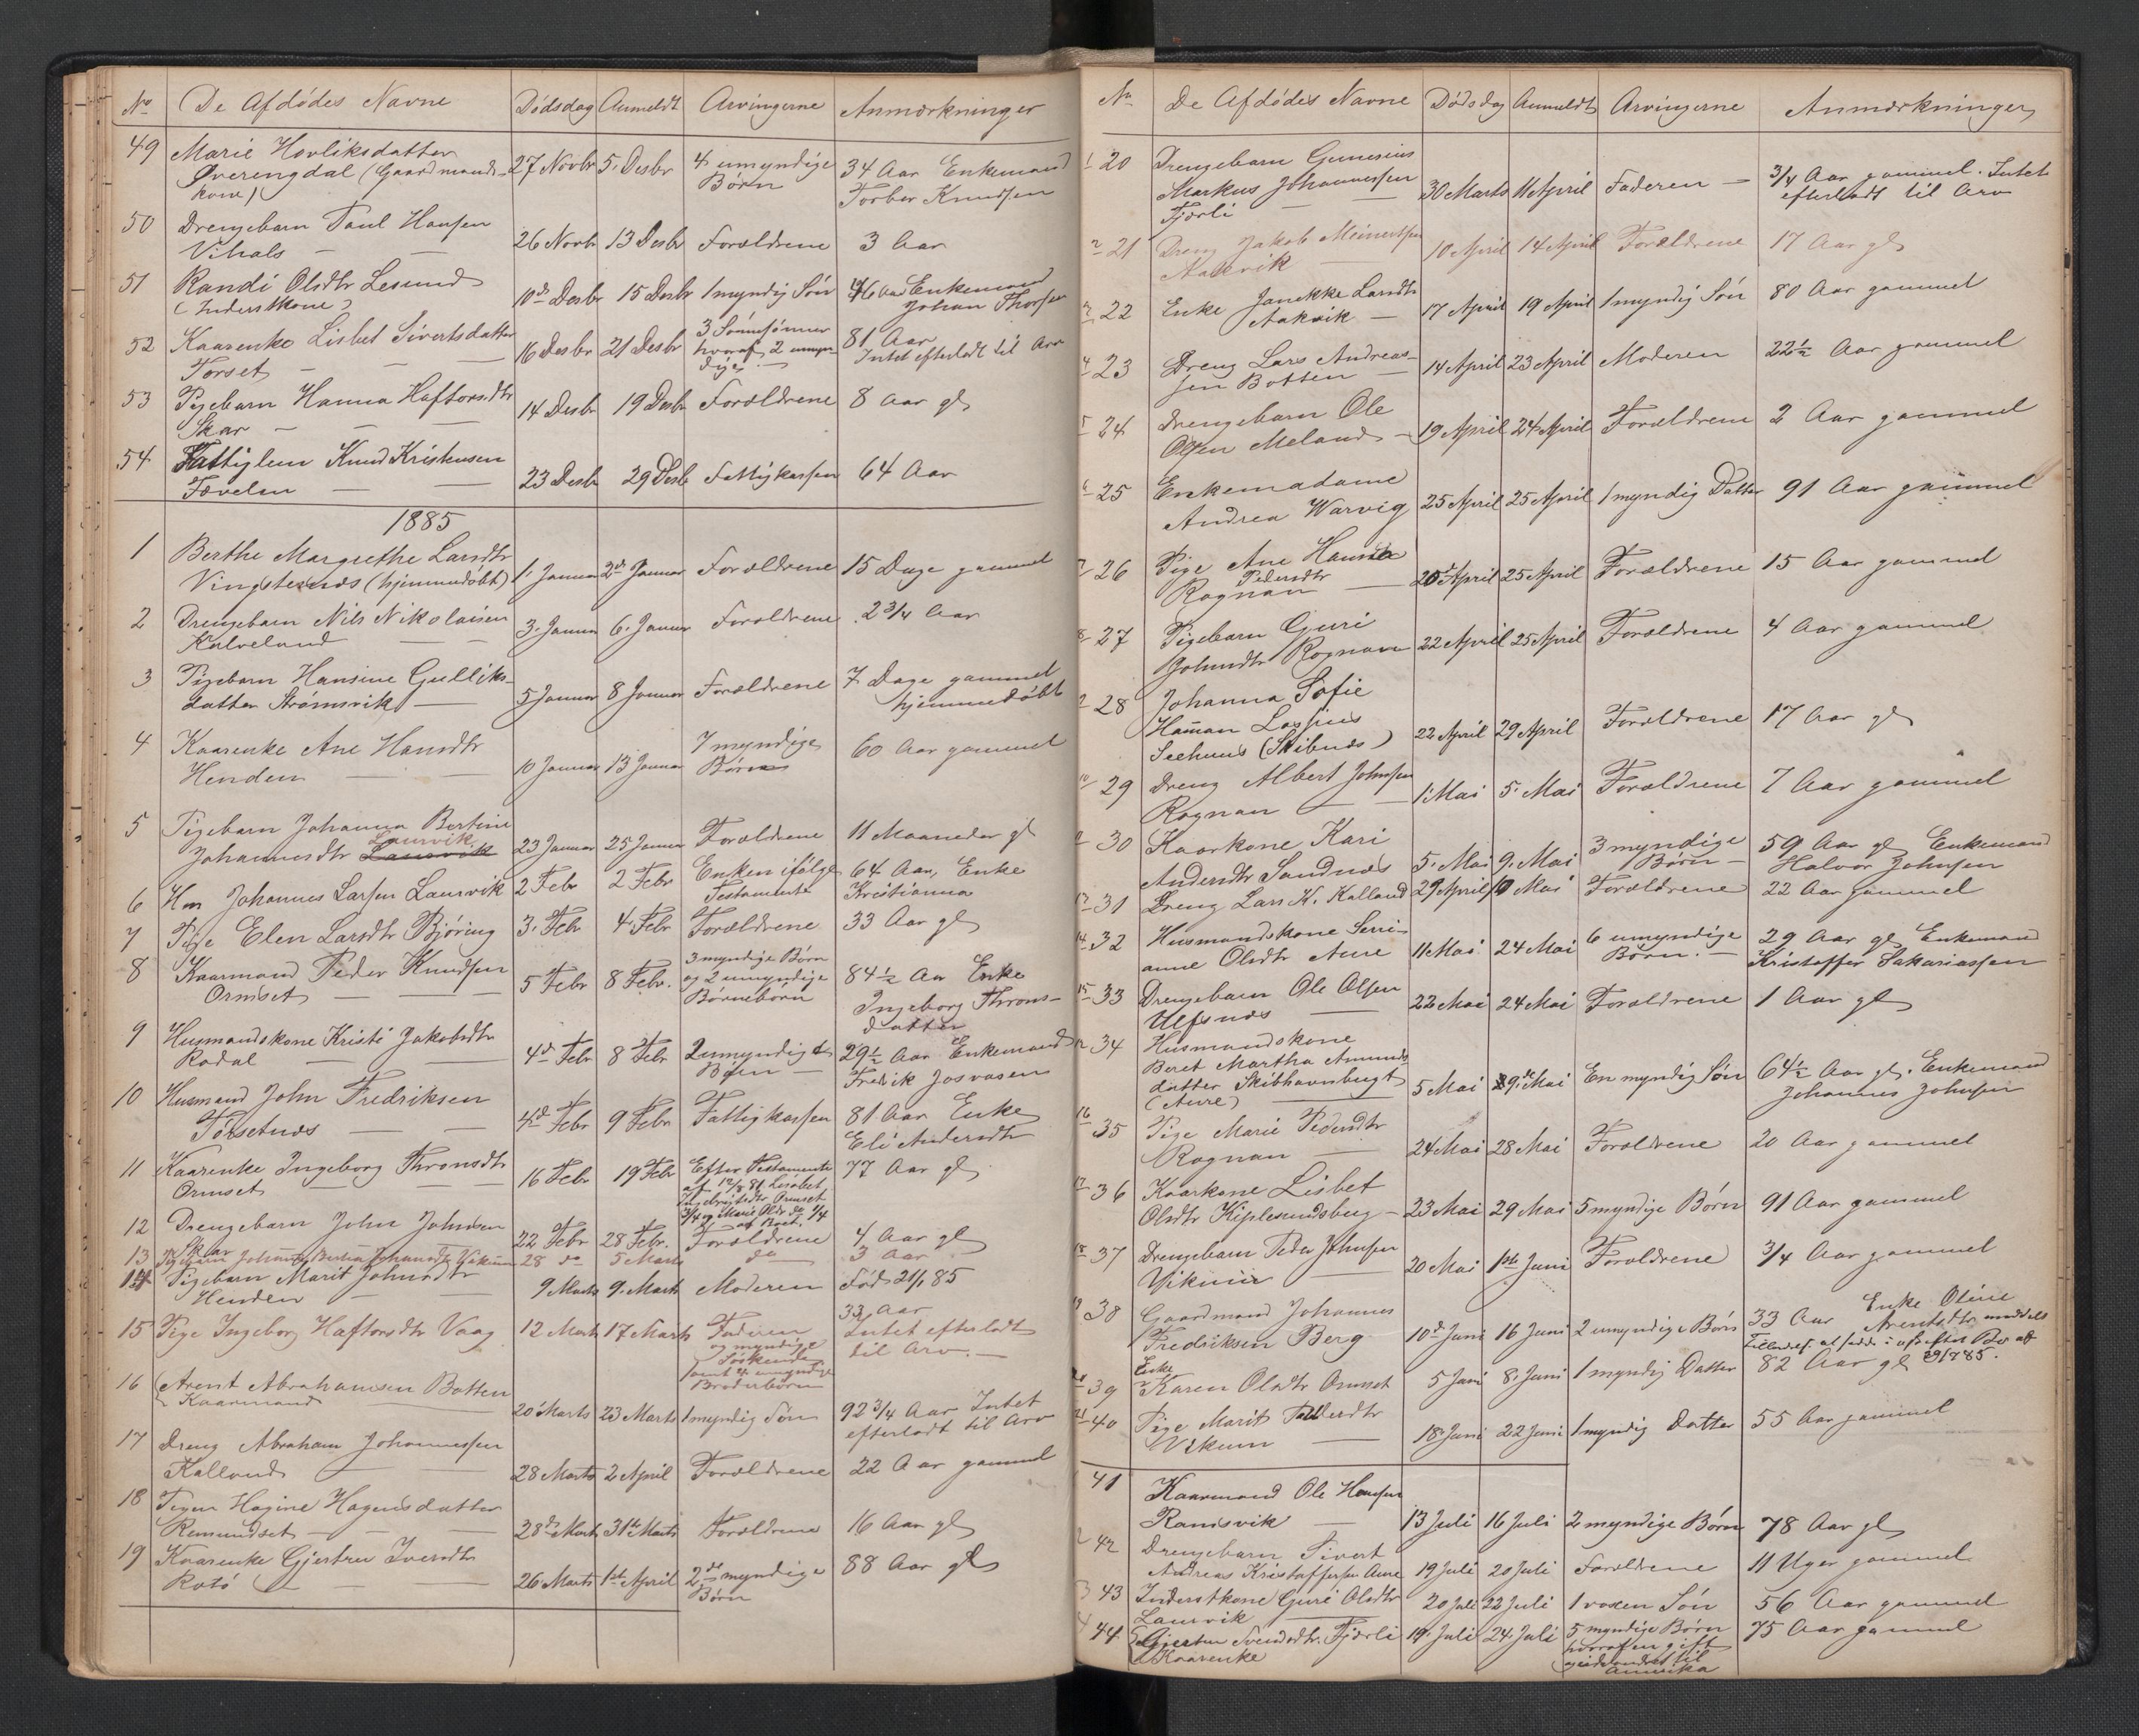 No De Afdødes Navne Dødsdag Anmeldt Arvingerne Anmærkninger
49 Marie Hovliksdatter
Øverengdal (Gaardmands- 27 Novbr 5. Desbr 4 umyndige 34 Aar Enkemand
kone) Børn Torber Knudsen
50 Drengebarn Paul Hansen
Vihals — 26 Novbr 13 Desbr Forældrene 3 Aar
51 Randi Olsdtr Lesund
(Inderstkone) 10de Desbr 15 Desbr 1 myndig Søn 46 Aar Enkemand
Johan Thorsen
52 Kaarenke Lisbet Sivertsdatter 3 Sønnesønner 81 Aar
Torset — 16 Desbr 21 Desbr hvoraf 2 umyn- Intet efterladt til Arv
dige —
53 Pigebarn Hanna Haftorsdtr
Skar — 14 Desbr 19 Desbr Forældrene 8 Aar gl
54 Fattiglem Knud Kristensen
Tævelen — 23 Desbr 29 Desbr Fattigkassen 64 Aar
1885
1 Berthe Margrethe Larsdtr
Vingsternes (hjemmedøbt) 1. Januar 2de Januar Forældrene 15 Dage gammel
2 Drengebarn Nils Nikolaisen
Kalveland 3. Januar 6. Januar Forældrene 2 3/4 Aar
3 Pigebarn Hansine Gulliks-
datter Strømsvik — 5 Januar 8 Januar Forældrene 7 Dage gammel
hjemmedøbt
4 Kaarenke Ane Hansdtr 7 myndige
Henden — 10 Januar 13 Januar Børn 60 Aar gammel
5 Pigebarn Johanna Bertine
Laurvik
Johannesdtr Laurvik 23 Januar 25 Januar Forældrene 11 Maaneder gl
6 Hm Johannes Larsen Laurvik 2 Febr 2 Febr Enken ifølge 64 Aar, Enke
Testamente Kristianna
7 Pige Elen Larsdtr Bjøring 3. Febr 4. Febr Forældrene 33 Aar gl
8 Kaarmand Peder Knudsen 3 myndige Børn
Ormset — 5 Febr 8 Febr. og 2 umyndige 84½ Aar Enke
Børnebørn Ingeborg Throns-
datter
9 Husmandskone Kristi Jakobsdtr
Rodal — 4de Febr 8 Febr 2 umyndige 29½ Aar Enkemand
Børn — Fredrik Josvasen
10 Husmand John Fredriksen
Torsetnes — 4de Febr 9 Febr Fattigkassen 81 Aar Enke
Eli Andersdtr
11 Kaarenke Ingeborg Thronsdtr
Ormset — 16 Febr 19 Febr Efter Testamente 77 Aar gl
af 12/8 81 Lisabet
Ingebrigtsdtr Ormset
3/4 og Marie Olsdr do 1/4
af Boet.
12 Drengebarn John Johnsen
Skar 22 Febr 28 Febr. Forældrene 4 Aar gl
13 Pigebarn Johanna Bertea Johansdtr Vikum 28 do 5 Marts do 3 Aar
14 Pigebarn Marit Johnsdtr
Henden — 9 Marts 9. Marts Moderen Født 21/1 85
15 Pige Ingeborg Haftorsdtr Vaag 12 Marts 17 Marts Faderen 33 Aar
og myndige Intet efterladt
Søskende til Arv. —
samt 4 umyndige
Broderbørn
16 Arent Abrahamsen Botten
Kaarmand 20 Marts 23 Marts 1 myndig Søn 92 3/4 Aar Intet
efterladt til Arv
17 Dreng Abraham Johannessen
Kalland — 28 Marts 2 April Forældrene 22 Aar gammel
18 Pigen Hagine Hagensdatter
Remundset — 28de Marts 31te Marts Forældrene 16 Aar gl
19 Kaarenke Gjertru Iversdtr
Rotø — 26 Marts 1ste April 2de myndige 88 Aar gl
Børn
No De Afdødes Navne Dødsdag Anmeldt Arvingerne Anmærkninger
1 20 Drengebarn Gunerius
Markus Johannessen 30 Marts 11 April Faderen — 3/4 Aar gammel. Intet
Fjærli — efterladt til Arv
2 21 Dreng Jakob Meinertsen
Aakvik — 10 April 14 April Forældrene 17 Aar gl
3 22 Enke Janekke Larsdtr
Aakvik — 17 April 19 April 1 myndig Søn 80 Aar gammel
4 23 Dreng Lars Andreas-
sen Botten — 14 April 23 April Moderen 22½ Aar gammel
5 24 Drengebarn Ole
Olsen Meland — 19 April 24 April Forældrene 2 Aar gammel
6 25 Enkemadame
Andrea Warvig 25 April 25 April 1 myndig Datter 91 Aar gammel
7 26 Pige Ane Hanna
Pedersdtr
Rognan — 20de April 25 April Forældrene 15 Aar gammel
8 27 Pigebarn Guri
Johnsdtr Rognan 22 April 25 April Forældrene 4 Aar gammel
9 28 Johanna Sofie
Haman Lossius
Seehuus (Skibnes) 22 April 29 April Forældrene 17 Aar gl
10 29 Dreng Albert Johnsen
Rognan — 1. Mai 5. Mai Forældrene 7 Aar gammel
30 Kaarkone Kari
Andersdtr Sandnes 5. Mai 9. Mai 3 myndige 59 Aar gl Enkemand
Børn — Halvor Johnsen
31 Dreng Lars K. Kalland 29 April 10 Mai Forældrene 22 Aar gammel
14 32 Husmandskone Seri-
anne Olsdtr Aure 11 Mai 24 Mai 6 umyndige 29 Aar gl Enkemand
Børn. — Kristoffer Sakariassen
15 33 Drengebarn Ole Olsen
Ulfsnes — 22 Mai 24 Mai Forældrene 1 Aar gl
34 Husmandskone
Beret Martha Amunds
datter Skibhavnbugt 5 Mai 29de Mai En myndig Søn 64½ Aar gl. Enkemand
(Aure) — Johannes Johnsen
16 35 Pige Marie Pedersdtr
Rognan — 24 Mai 28 Mai Forældrene 20 Aar gammel
17 36 Kaarkone Lisbet
Olsdtr Kiplesundsberg — 23 Mai 29 Mai 5 myndige Børn 91 Aar gammel
18 37 Drengebarn Peder Johnsen
Vikum — 20 Mai 1ste Juni Forældrene 3/4 Aar gammel
19 38 Gaardmand Johannes
Fredriksen Berg 10de Juni 16 Juni 2 umyndige Børn 33 Aar Enke Oline
Arentsdtr meddelt
Tilladelse at sidde i uskiftet Bo
20 39 Enke
Karen Olsdtr Ormset 5 Juni 8. Juni 1 myndig Datter 82 Aar gl
21 40 Pige Marit Pedersdtr
Vikum — 18. Juni 22 Juni 1 myndig Datter 55 Aar gammel
1 41 Kaarmand Ole Hansen
Ramsvik — 13 Juli 16 Juli 2 myndige Børn 78 Aar gl
2 42 Drengebarn Sivert
Andreas Kristoffersen Aure 19 Juli 20 Juli Forældrene 11 Uger gammel
3 43 Inderstkone Guri Olsdtr 20 Juli 22 Juli 1 voxen Søn 56 Aar gammel
Laurvik —
4 44 Gjertru Svendsdtr. Fjærli 19. Juli 24. Juli 5 myndige Børn 75 Aar gammel
Kaarenke hvoraf en gift
og udvandret til
Amerika